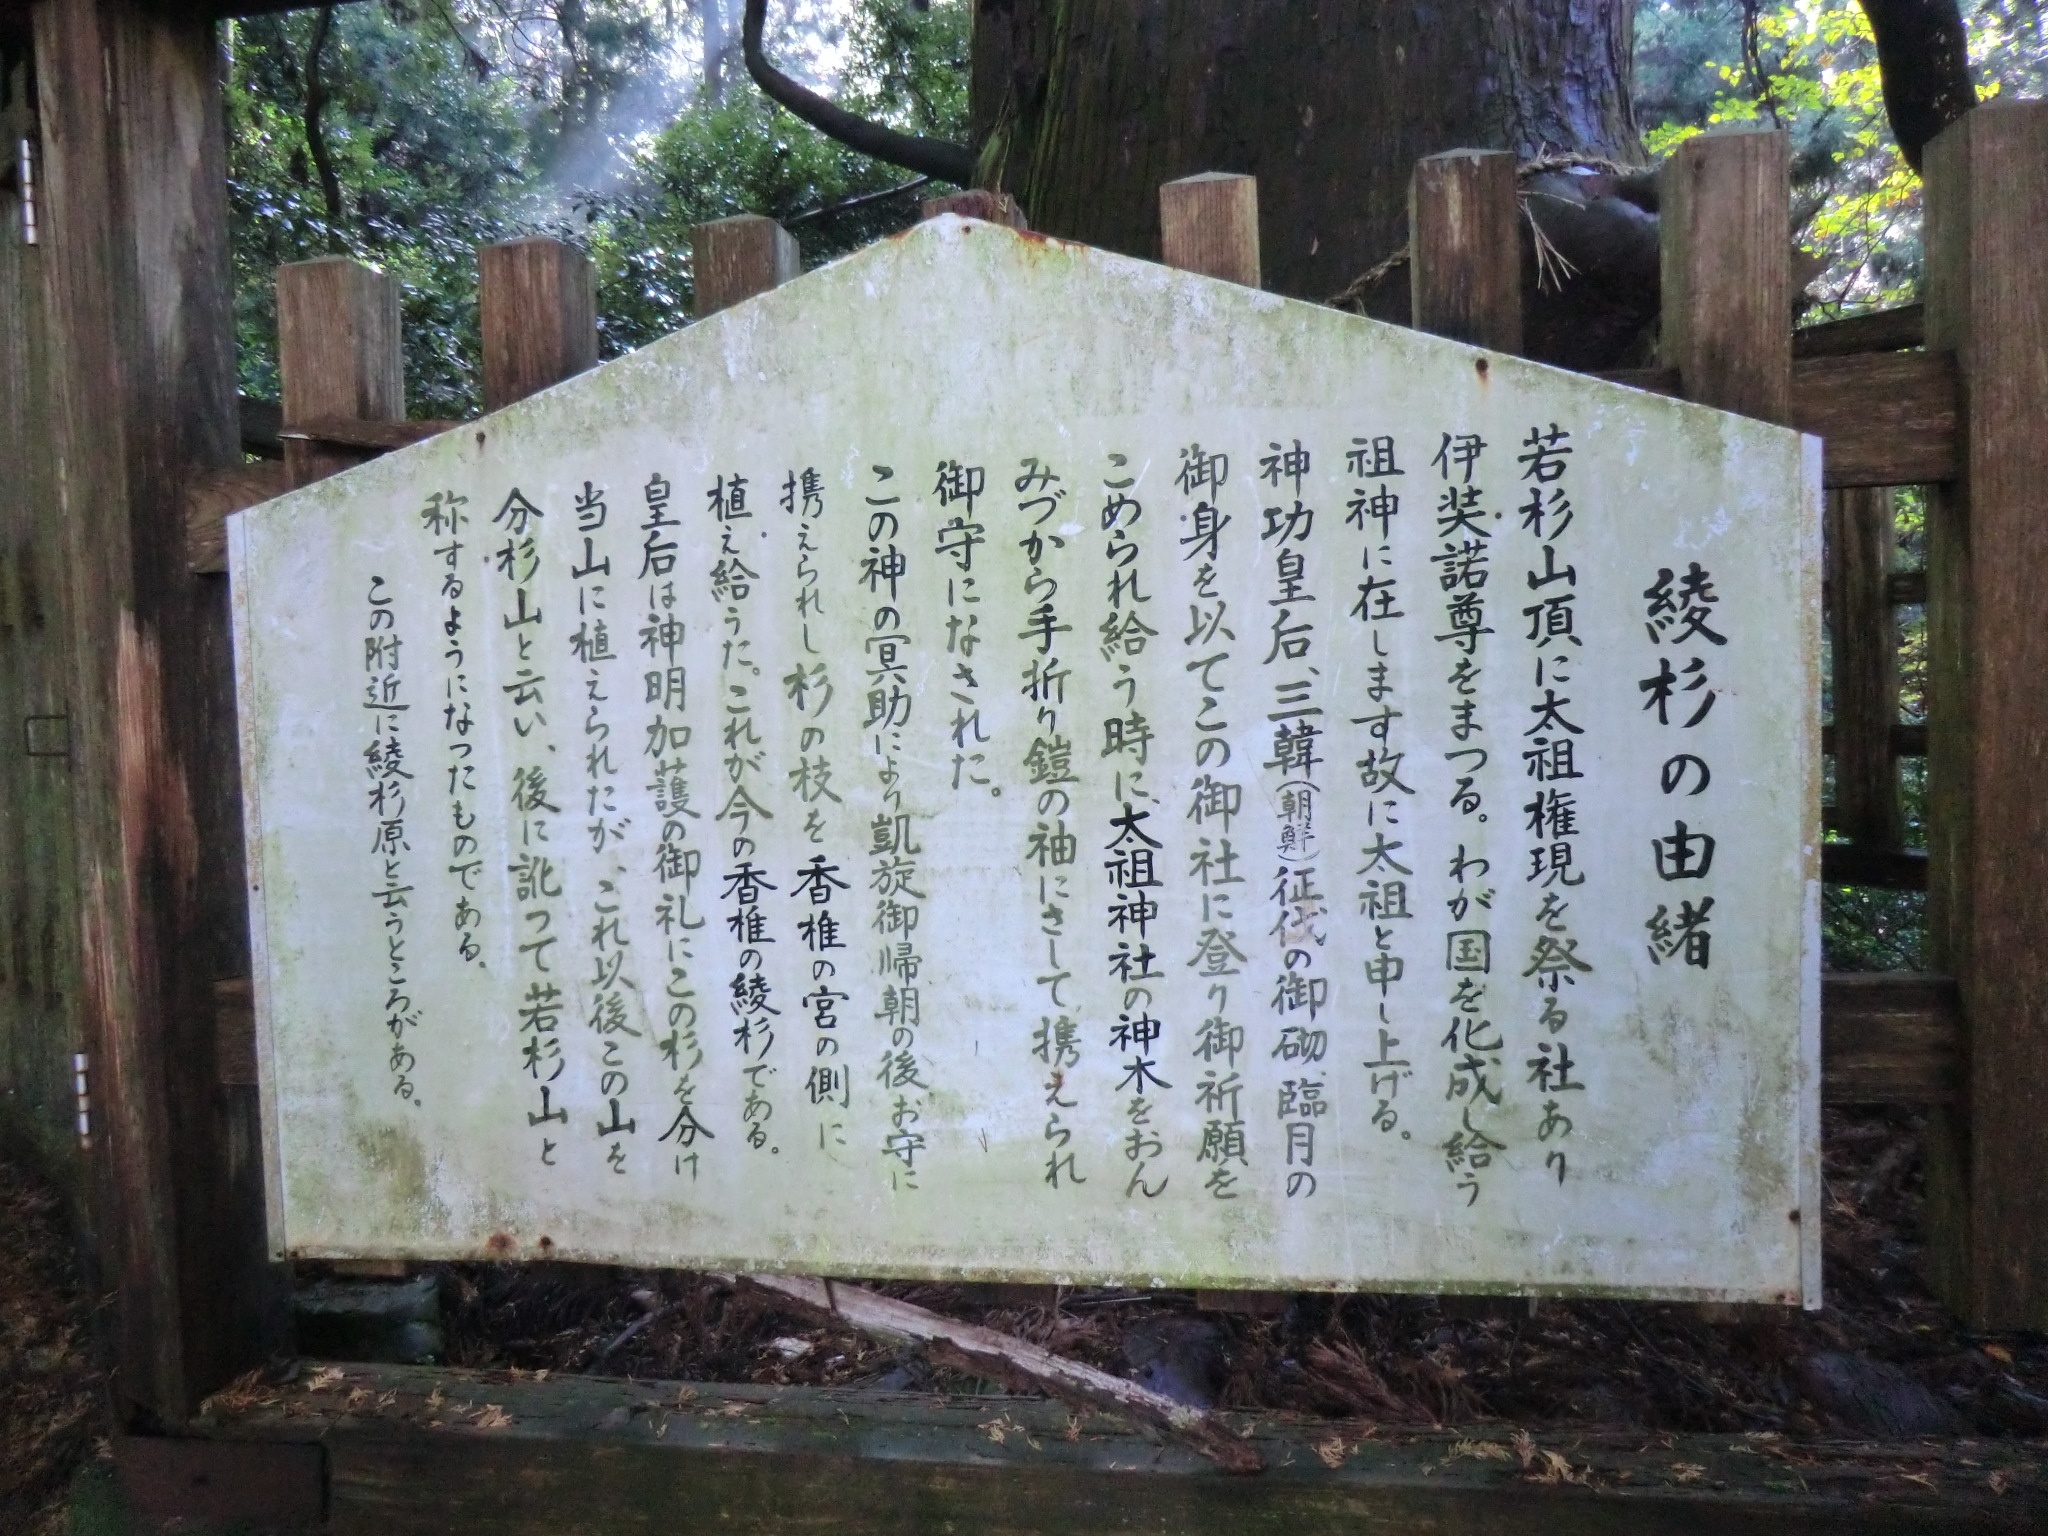 綾杉の由緒
若杉山頂に太祖権現を祭る社あり
伊奘諾尊をまつる。わが国を化成し給う
祖神に在します故に太祖と申し上げる。
神功皇后、三韓(朝鮮)征伐の御砌、臨月の
御身を以てこの御社に登り御祈願を
こめられ給う時に、太祖神社の神木をおん
みづから手折り鎧の袖にさして、携えられ
御守になされた。
この神の冥助により凱旋御帰朝の後お守に
携えられし杉の枝を香椎の宮の側に
植え給うた。これが今の香椎の綾杉である。
皇后は神明加護の御礼にこの杉を分け
当山に植えられたが、これ以後この山を
分杉山と云い、後に訛って若杉山と
称するようになったものである。
この附近に綾杉原と云うところがある。